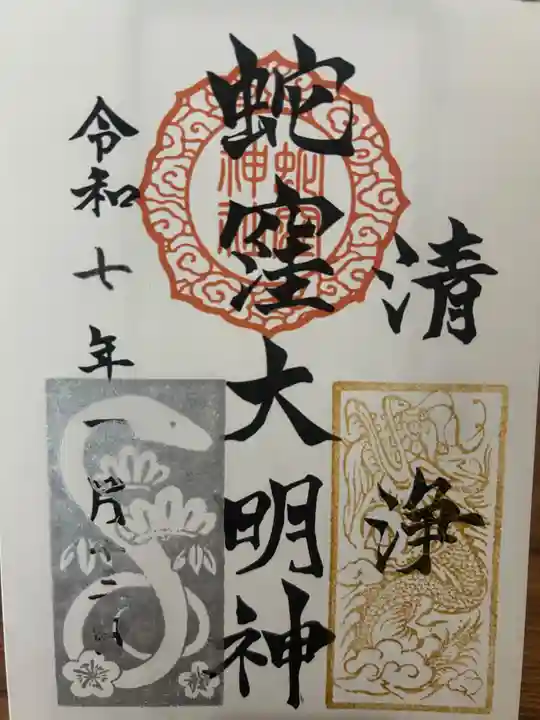 清浄
蛇窪大明神
蛇窪神社
令和七年一月十二日